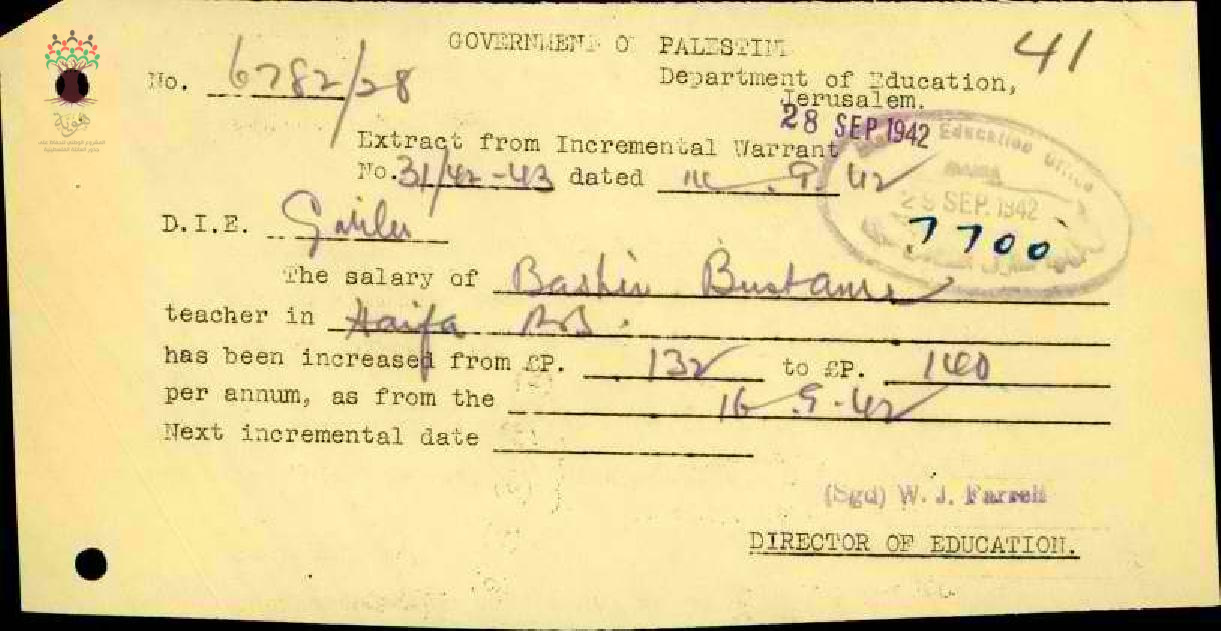 هوية
GOVERNMENT OF PALESTINE
41
No. 6782/28
Department of Education,
Jerusalem.
28 SEP 1942
Extract from Incremental Warrant
No. 31/42-43 dated 14.9.42
Education Office
29 SEP. 1942
7700
D.I.E. Galilee
The salary of Bashir Bustami
teacher in Haifa
has been increased from £P. 132 to £P. 140
per annum, as from the 16.9.42
Next incremental date
(Sgd) W. J. Farrell
DIRECTOR OF EDUCATION.